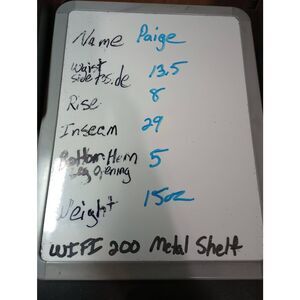 Name Paige
Waist
side to side 13.5
Rise 8
Inseam 29
Bottom Hem
Leg Opening 5
Weight 15oz
WIFI 200 Metal Shelf